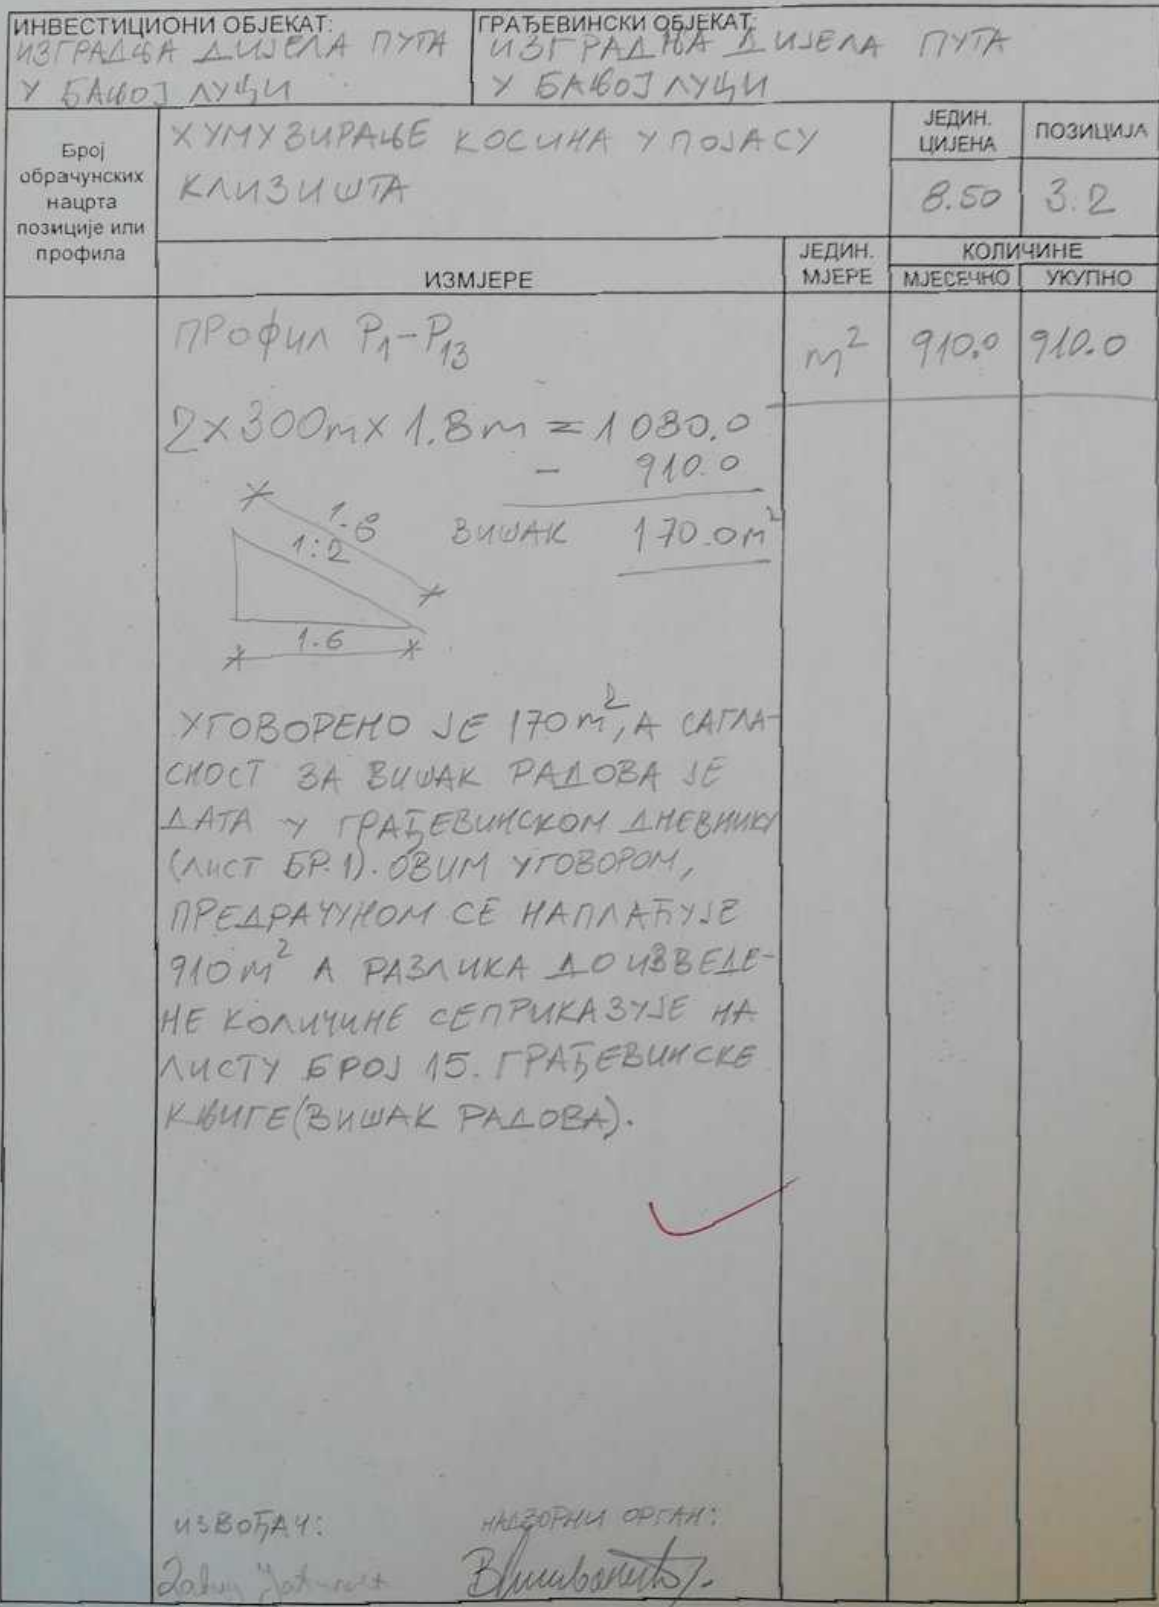 ИНВЕСТИЦИОНИ ОБЈЕКАТ:
ИЗГРАДЊА ДИЈЕЛА ПУТА
У БАЊОЈ ЛУЦИ
ГРАЂЕВИНСКИ ОБЈЕКАТ:
ИЗГРАДЊА ДИЈЕЛА ПУТА
У БАЊОЈ ЛУЦИ
Број
обрачунских
нацрта
позиције или
профила
ХУМУЗИРАЊЕ КОСИНА У ПОЈАСУ
КЛИЗИШТА
ЈЕДИН.
ЦИЈЕНА
ПОЗИЦИЈА
8.50
3.2
ИЗМЈЕРЕ
ЈЕДИН.
МЈЕРЕ
КОЛИЧИНЕ
МЈЕСЕЧНО
УКУПНО
ПРОФИЛ P1-P13
m²
910.0
910.0
2x300mx1.8m = 1080.0
- 910.0
ВИШАК 170.0m²
1.8
1:2
1.6
УГОВОРЕНО ЈЕ 170m², А САГЛА-
СНОСТ ЗА ВИШАК РАДОВА ЈЕ
ДАТА У ГРАЂЕВИНСКОМ ДНЕВНИКУ
(ЛИСТ БР.1). ОВИМ УГОВОРОМ,
ПРЕДРАЧУНОМ СЕ НАПЛАЋУЈЕ
910m² А РАЗЛИКА ДО ИЗВЕДЕ-
НЕ КОЛИЧИНЕ СЕ ПРИКАЗУЈЕ НА
ЛИСТУ БРОЈ 15. ГРАЂЕВИНСКЕ
КЊИГЕ (ВИШАК РАДОВА).
ИЗВОЂАЧ:
НАДЗОРНИ ОРГАН: